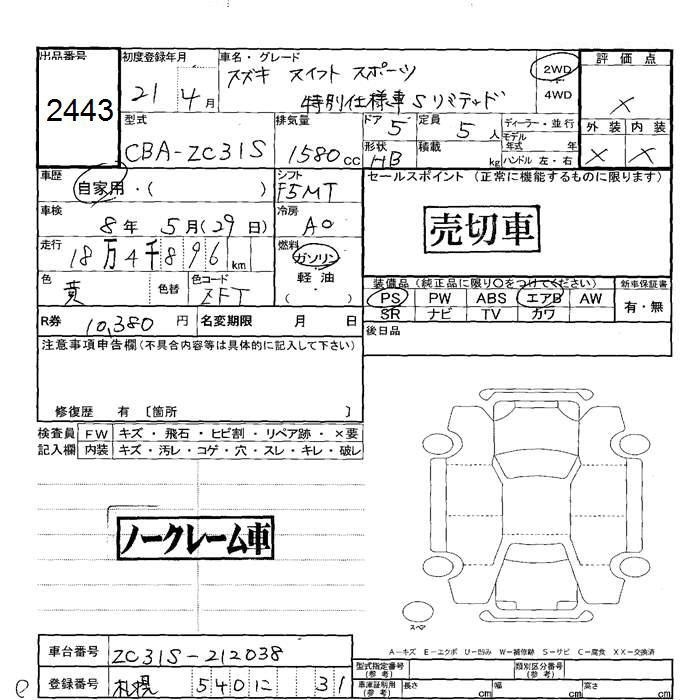 出品番号 初度登録年月 車名・グレード 評価点
2443 21 4月 スズキ スイフト スポーツ 2WD ×
特別仕様車 Sリミテッド 4WD
型式 排気量 ドア 5 定員 5人 ディーラー・並行 外装 内装
モデル年式 年
CBA-ZC31S 1580cc 形状 HB 積載 kg ハンドル 左・右 × ×
車歴 シフト セールスポイント (正常に機能するものに限ります)
自家用・( ) F5MT
車検 8年 5月(29日) 冷房 AC 売切車
走行 18万4千896km 燃料 ガソリン
軽油
( )
色 黄 色替 色コード ZFT
装備品(純正品に限り○をつけてください) 新車保証書
PS PW ABS エアB AW 有・無
SR ナビ TV カワ
R券 10,380円 名変期限 月 日
後日品
注意事項申告欄(不具合内容等は具体的に記入して下さい)
修復歴 有 〔箇所 〕
検査員 FW キズ・飛石・ヒビ割・リペア跡・×要
記入欄 内装 キズ・汚レ・コゲ・穴・スレ・キレ・破レ
ノークレーム車
スペア
A-キズ E-エクボ U-凹み W-補修跡 S-サビ C-腐食 XX-交換済
車台番号 ZC31S-212038
型式指定番号(参考) 類別区分番号(参考)
登録番号 札幌 540 に 31
車庫証明用(参考) 長さ cm 幅 cm 高さ cm